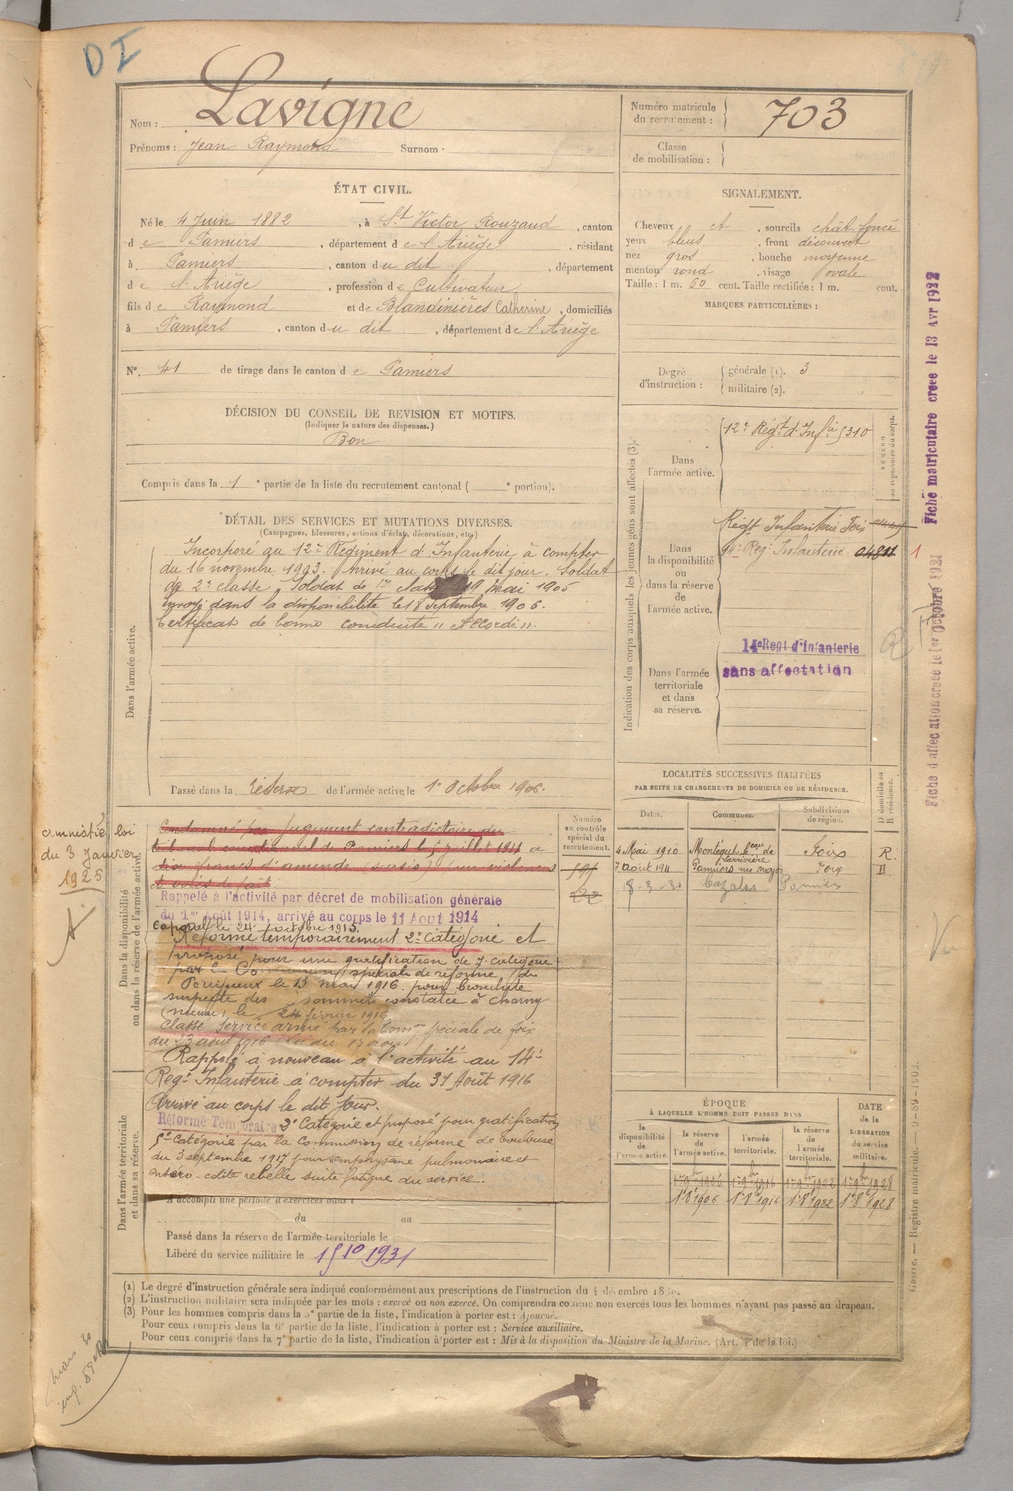 DI
Nom : Lavigne
Prénoms : Jean Raymond Surnom :
Numéro matricule du recrutement : 703
Classe de mobilisation :
ÉTAT CIVIL.
Né le 4 Juin 1882, à St Victor Rouzaud, canton
de Pamiers, département de l'Ariège, résidant
à Pamiers, canton du dit, département
de l'Ariège, profession de Cultivateur
fils de Raymond et de Blandinières Catherine, domiciliés
à Pamiers, canton du dit, département de l'Ariège
N° 41 de tirage dans le canton de Pamiers
SIGNALEMENT.
Cheveux et, sourcils chât foncé
yeux bleus, front découvert
nez gros, bouche moyenne
menton rond, visage ovale
Taille : 1 m. 60 cent. Taille rectifiée : 1 m. cent.
MARQUES PARTICULIÈRES :
Degré d'instruction : générale (1). 3
militaire (2).
DÉCISION DU CONSEIL DE REVISION ET MOTIFS.
(Indiquer la nature des dispenses.)
Bon
Compris dans la 1e partie de la liste du recrutement cantonal ( e portion).
DÉTAIL DES SERVICES ET MUTATIONS DIVERSES.
(Campagnes, blessures, actions d'éclat, décorations, etc.)
Dans l'armée active.
Incorporé au 12e Régiment d'Infanterie à compter
du 16 novembre 1903. Arrivé au corps le dit jour. Soldat
de 2e classe. Soldat de 1re 19 Mai 1905
dans la disponibilité le 18 Septembre 1906.
Certificat de bonne conduite "Accordé".
Passé dans la réserve de l'armée active le 1er Octobre 1906.
Indication des corps auxquels les jeunes gens sont affectés (3).
Dans l'armée active.
12e Régt d'Infie 5310
Dans la disponibilité ou dans la réserve de l'armée active.
Régt Infanterie Foix
Reg. Infanterie 1
Dans l'armée territoriale et dans sa réserve.
14e Regt d'Infanterie
sans affectation
Fiche matriculaire créée le 13 Avr 1922
Octobre 1921
Dans la disponibilité ou dans la réserve de l'armée active.
amnistié loi
du 3 Janvier
1925
Condamné par jugement contradictoire du
tribunal correctionnel de Pamiers le juillet 1911 à
dix francs d'amende (sursis) pour violences
et voies de fait
Rappelé à l'activité par décret de mobilisation générale
du 1er Août 1914, arrivé au corps le 11 Août 1914
Caporal le 24 octobre 1915.
Réformé temporairement 2e catégorie et
proposé pour une gratification de 7e catégorie
par la Commission spéciale de réforme de
Périgueux le 13 mai 1916 pour bronchite
suspecte des sommets constatée à Charny
(meuse) le 24 février 1916
Classé Service armé par la Comon spéciale de Foix
du 23 août 1916
Rappelé à nouveau à l'activité au 14e
Regt Infanterie à compter du 31 Août 1916
Arrivé au corps le dit jour.
Réformé Temporaire 2e Catégorie et proposé pour gratification
5e Catégorie par la Commission de réforme de Toulouse
du 3 septembre 1917 pour emphysème pulmonaire et
entéro-colite rebelle suite fatigue du service.
Dans l'armée territoriale et dans sa réserve.
A accompli une période d'exercices dans l
du au
Passé dans la réserve de l'armée territoriale le
Libéré du service militaire le 15 10 1931
Numéro au contrôle spécial du recrutement.
LOCALITÉS SUCCESSIVES HABITÉES
PAR SUITE DE CHANGEMENTS DE DOMICILE OU DE RÉSIDENCE.
Dates. Communes. Subdivisions de région. D domicile ou R résidence.
4 Mai 1910 Foix R.
7 août 1911 Pamiers Foix D
8-3-31 Pamiers
ÉPOQUE
À LAQUELLE L'HOMME DOIT PASSER DANS
la disponibilité de l'armée active. la réserve de l'armée active. l'armée territoriale. la réserve de l'armée territoriale.
DATE de la LIBÉRATION du service militaire.
1er 8bre 1906 1er 8bre 1916 1er 8bre 1922 1er 8bre 1928
Guerre. — Registre matricule.
(1) Le degré d'instruction générale sera indiqué conformément aux prescriptions de l'instruction du 4 décembre 1889.
(2) L'instruction militaire sera indiquée par les mots : exercé ou non exercé. On comprendra comme non exercés tous les hommes n'ayant pas passé au drapeau.
(3) Pour les hommes compris dans la 5e partie de la liste, l'indication à porter est : Ajourné.
Pour ceux compris dans la 6e partie de la liste, l'indication à porter est : Service auxiliaire.
Pour ceux compris dans la 7e partie de la liste, l'indication à porter est : Mis à la disposition du Ministre de la Marine. (Art. 4 de la loi.)